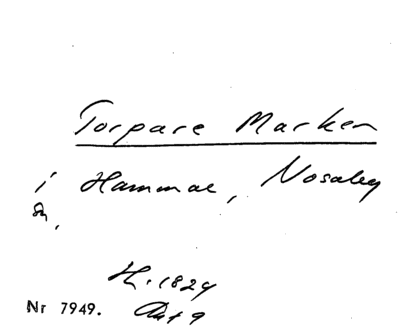 Torpare Marken
i Hammar, Nosaby
sn.
H. 1824
Nr 7949.